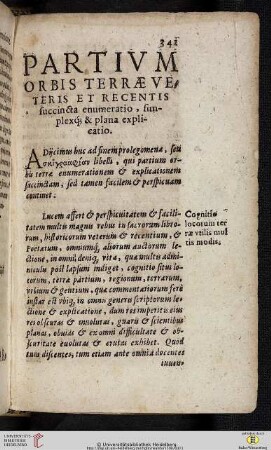 341
PARTIVM
ORBIS TERRÆ VE-
TERIS ET RECENTIS
succincta enumeratio, sim-
plexq́; & plana expli-
catio.
ADijcimus huc ad finem prolegomena, seu
libelli, qui partium or-
bis terræ enumerationem & explicationem
succinctam, sed tamen facilem & perspicuam
continet.
Lucem affert & perspicuitatem & facili-
tatem multis magnis rebus in sacrorum libro-
rum, historicorum veterum & recentium, &
Poetarum, omniumq́; aliorum auctorum lectione
, in omni deniq́; vita, quæ multis admi-
niculis post lapsum indiget, cognitio situs lo-
corum, terræ partium, regionum, terrarum,
vrbium & gentium, quæ commentariorum ferè
instar est vbiq́; in omni genere scriptorum lec-
tione & explicatione, dum
res obscuras & inuolutas, gnaris & scientibus
planas, obuias & ex omni difficultate & ob-
scuritate euolutas & erutas exhibet. Quod
cum discentes, tum etiam ante omnia docentes
Cognitio
locorum ter
ræ vtilis mul
tis modis.
© Universitätsbibliothek Heidelberg